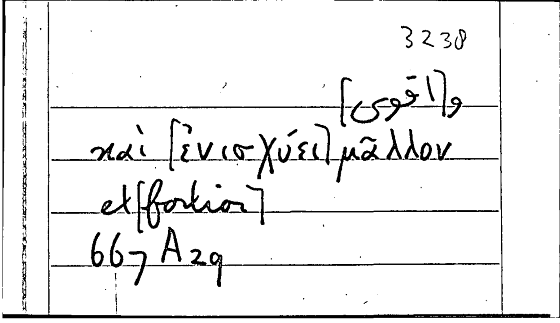 3238
و[اقوى]
καὶ [ἐνισχύει] μᾶλλον
et [fortior]
667 A 29